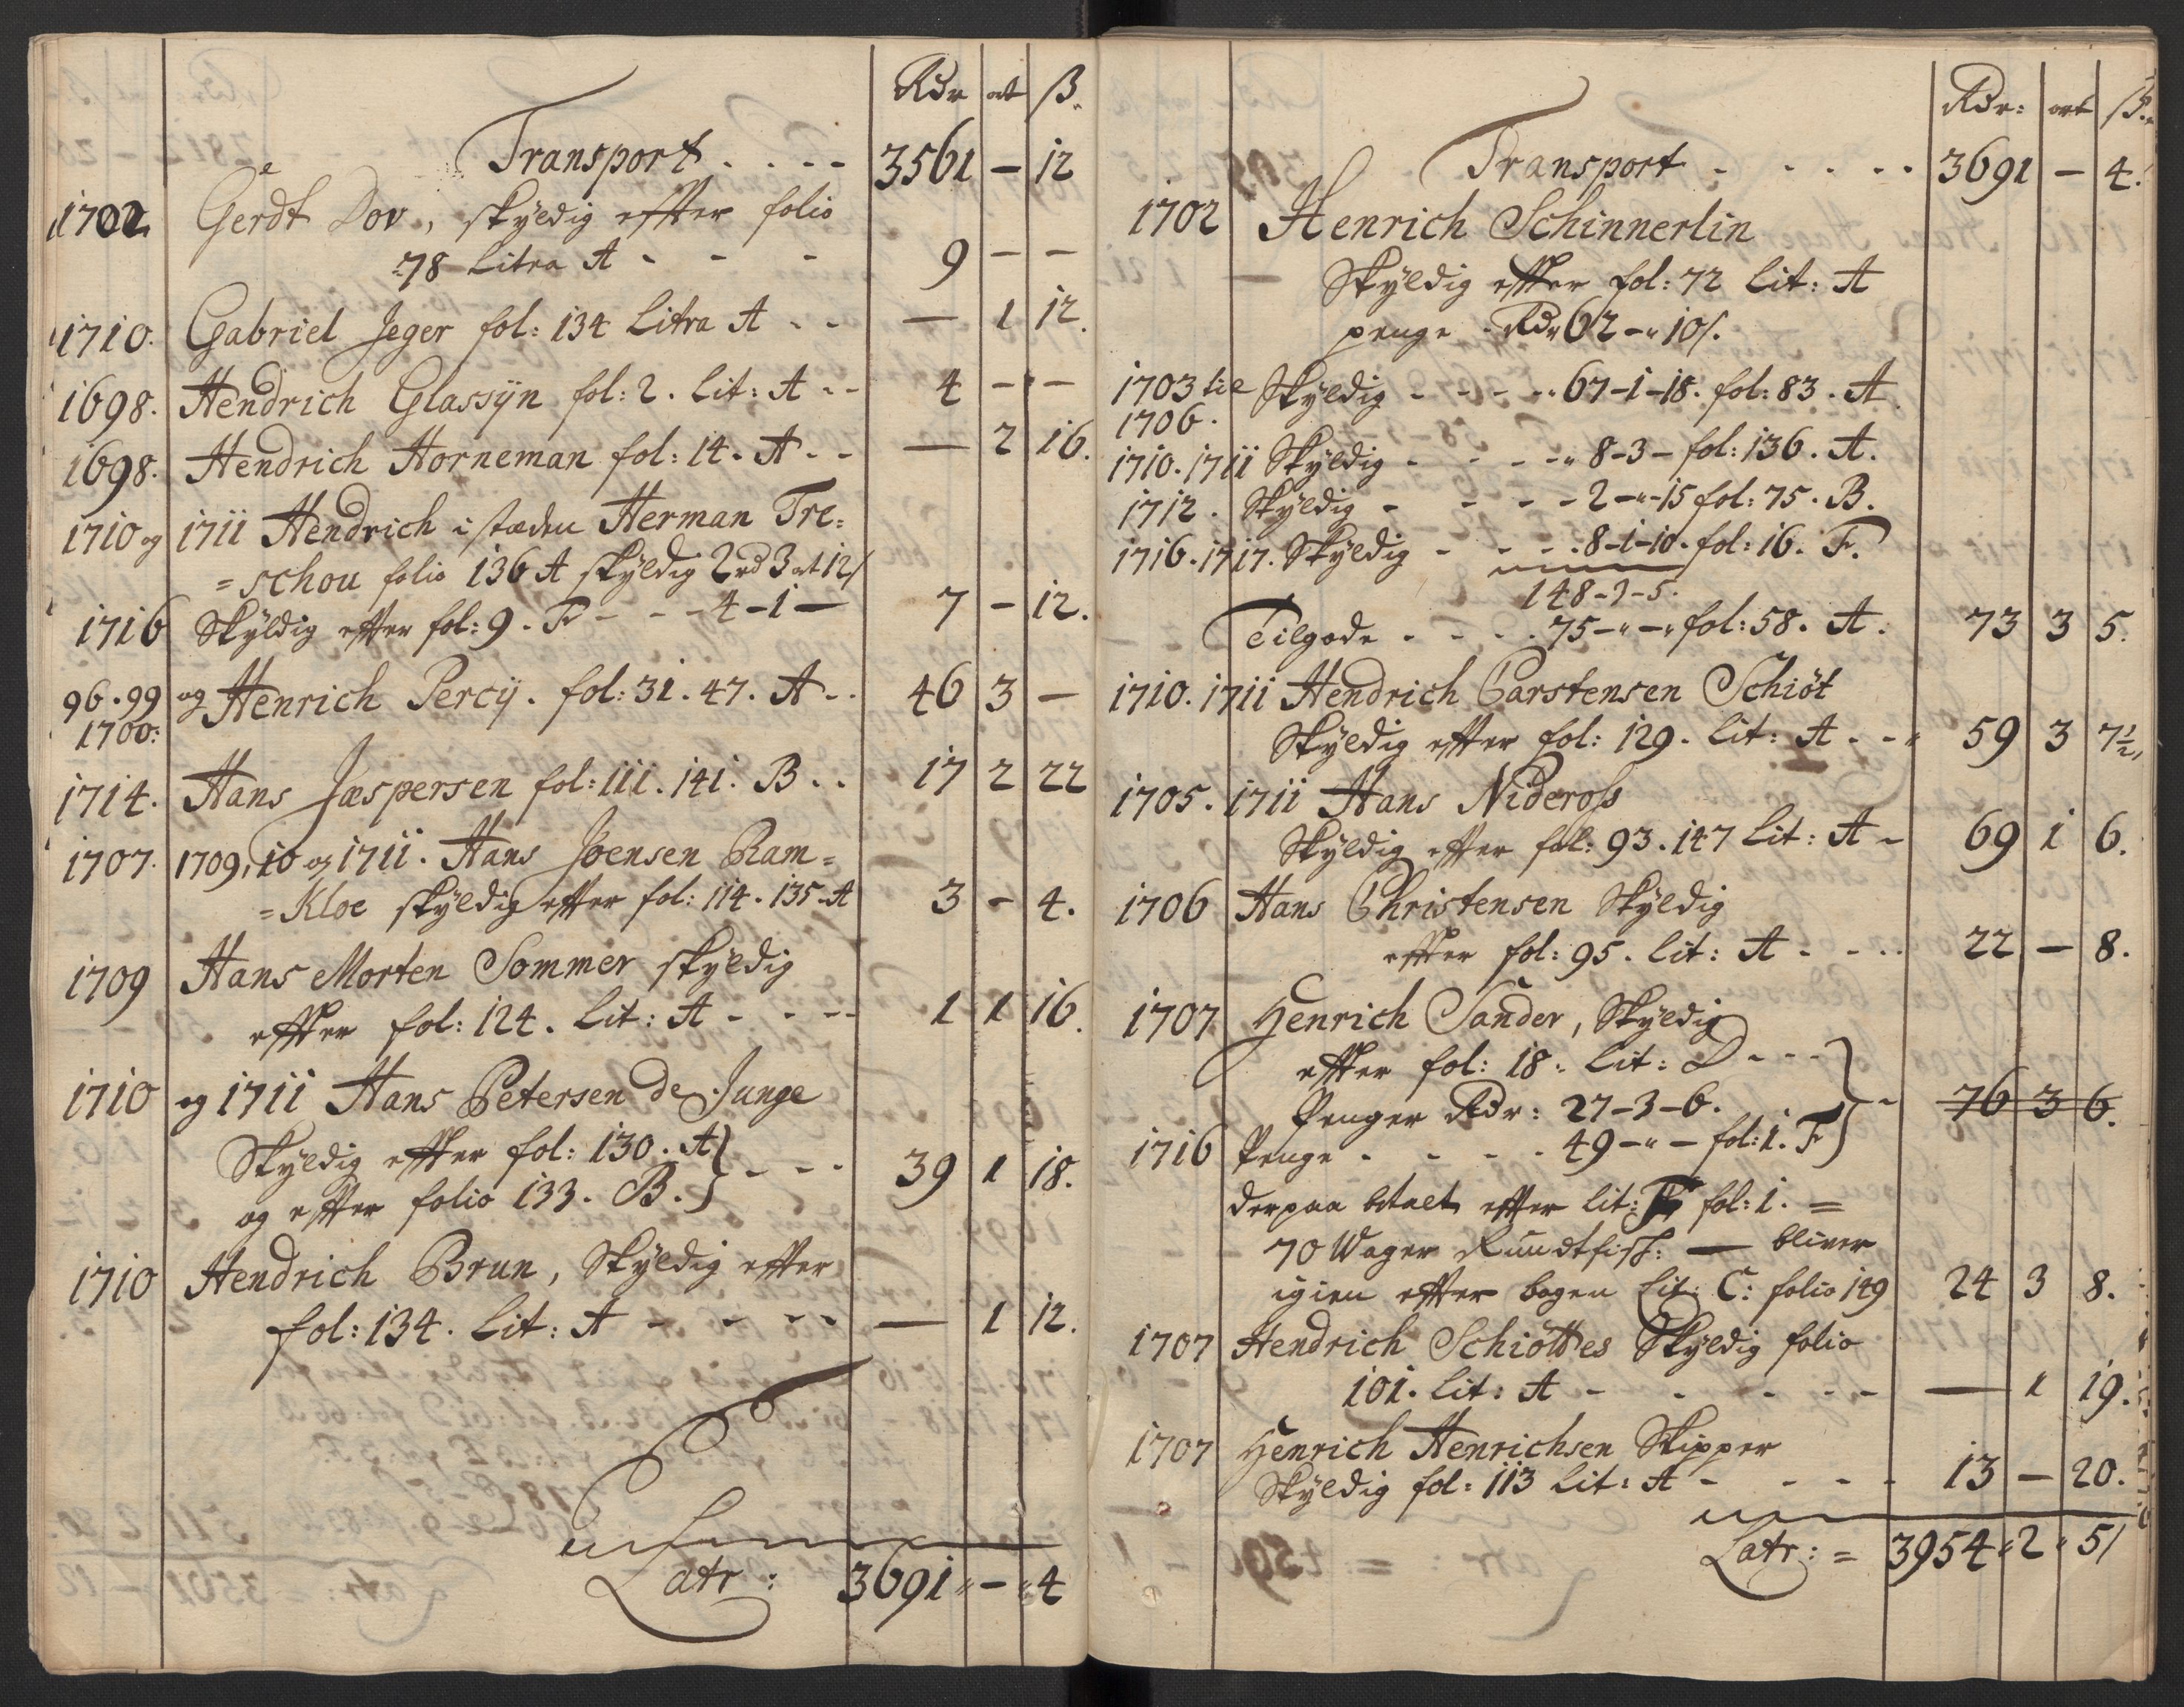 Rdr ort ß.
Transport - - - - 3561 – 12
1702. Gerdt Dov, skyldig effter folio
78 Litra A - - - 9 – –
1710. Gabriel Jeger fol: 134 Litra A - - — 1 12.
1698. Hendrich Glassÿn fol: 2. Lit: A - - 4 – –
1698. Hendrich Horneman fol: 14. A - - — 2 16.
1710 og 1711 Hendrich i stæden Herman Tre=
=schou folio 136 A skyldig 2 rd 3 ort 12 ß
1716 Skyldig effter fol: 9. F - - - 4–1— 7 – 12.
96. 99 og Henrich Percÿ. fol: 31. 47. A - - 46 3 —
1700:
1714. Hans Jæspersen fol: 111. 141. B - - 17 2 22
1707. 1709, 10 og 1711. Hans Joensen Ram=
=Kloe skyldig effter fol: 114. 135. A 3 – 4.
1709 Hans Morten Sommer skyldig
effter fol: 124. Lit: A - - - - 1 1 16.
1710 og 1711 Hans Petersen de Junge
Skyldig effter fol: 130. A } - - - 39 1 18.
og effter folio 133. B. }
1710 Hendrich Brun, Skyldig effter
fol: 134. Lit: A - - - - — 1 12.
Latr: 3691 " – " 4
Rdr: ort ß.
Transport - - - - - 3691 – 4.
1702 Henrich Schinnerlin
Skyldig effter fol: 72 Lit: A
penge - Rdr 62 – " 10 ß.
1703 til Skyldig - - - - " 67–1–18. fol: 83. A
1706.
1710. 1711 Skyldig - - - - " 8–3– fol: 136. A.
1712. Skyldig - - - - 2–"–15 fol: 75. B.
1716. 1717. Skyldig - - - . 8–1–10. fol: 16. F.
148–3–5.
Tilgode - - - . 75–"–" fol: 58. A. 73 3 5.
1710. 1711 Hendrich Carstensen Schiöt
Skyldig effter fol: 129. Lit: A - - " 59 3 7½,
1705. 1711 Hans Nideross
Skyldig effter fol: 93. 147 Lit: A - 69 1 6.
1706 Hans Christensen Skyldig
effter fol: 95. Lit: A - - - - 22 — 8.
1707 Henrich Sander, Skyldig
effter fol: 18. Lit: D - - - }
Penger Rdr: 27–3–6. } - 76 3 6.
1716 Penge - - - - 49–"– fol: 1. F }
derpaa betalt effter Lit: F fol: 1. =
70 Woger Rundtfisk: — bliver
igien effter bogen Lit: C: folio 149 24 3 8.
1707 Hendrich Schiöttes Skyldig folio
101. Lit: A - - - - - — 1 19.
1707 Henrich Henrichsen Skipper
Skyldig fol: 113 Lit: A - - - - 13 — 20.
Latr: = 3954 " 2 " 5 ß